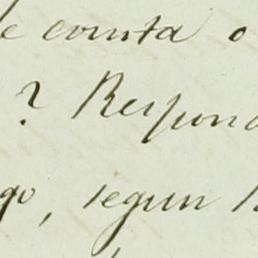 e consta o
? Respond
go, segun l